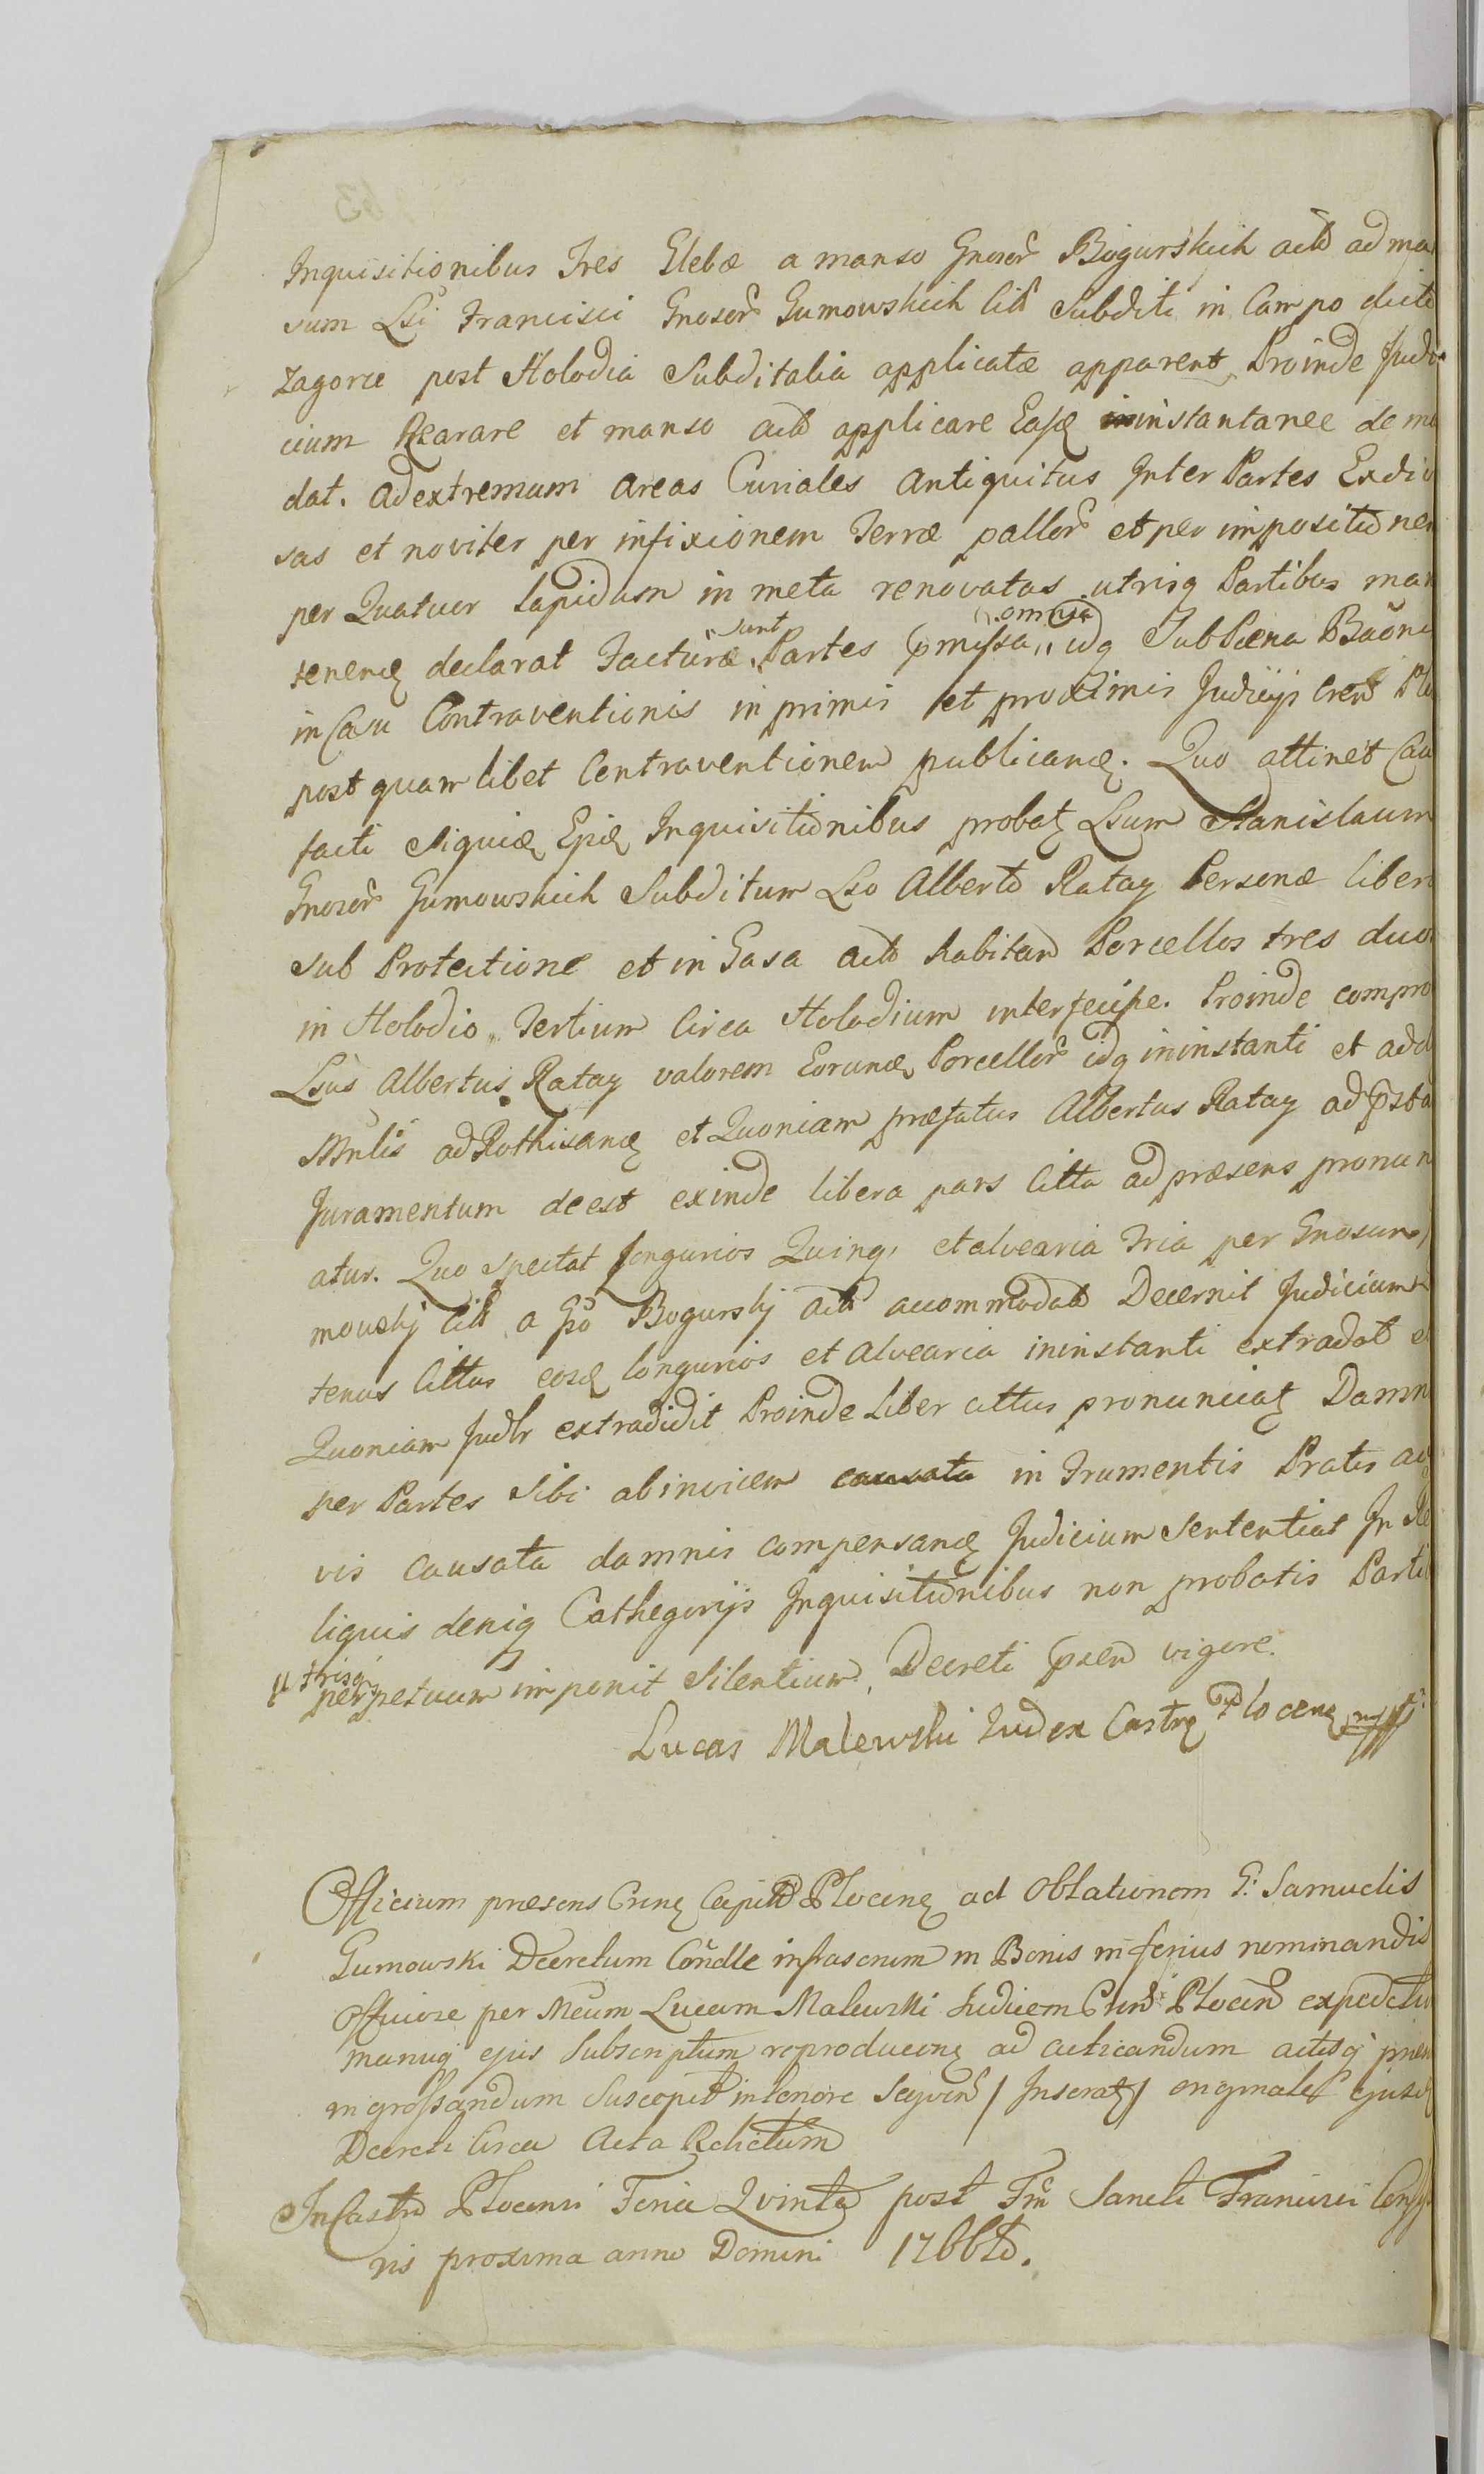 Inquisitionibus Tres Glebæ a manso Gnosor Bogurskich actt ad man
sum Lsi Francisci Gnosor Gumowskich citt Subditi in Campo dicto
Zagorce post Holodia Subditalia applicatæ apparent, Proinde Judi
cium Rearare et manso actt applicare Easq ininstantanee de man
dat. Ad extremum Areas Curiales Antiquitus Inter Partes Exdivi
sas et noviter per infixionem Terræ pallor et per impositionem
per Quatuor Lapidum in meta renovatas utrisq Partibus man
sunt omnia
tenenq declarat Facturæ Partes pmissa idq Sub Pæna Baõnis
in Casu Contraventionis in primis et proximis Judicijs Cren Plo
post quamlibet Contraventionem publicanq. Quo attinet Cau
facti Siquidq Epiq Inquisitionibus probatq Lsum Stanislaum
Gnosor Gumowskich Subditum Lso Alberto Ratay Personæ liberæ
sub Protectione et in Casa actt habitan Porcellos tres duos
in Holodio, Tertium Circa Holodium interfecisse. Proinde compro
Lsus Albertus Ratay valorem Eorundq Porcellor idq ininstanti et add
Mulis ad Rothisanq et Quoniam præfatus Albertus Ratay ad pstan
Juramentum deest exinde libera pars citta ad præsens pronunci
atur. Quo spectat Longurios Quinq, et alvearia Tria per Gnosum
mowskj citt a Gso Bogurskj actt accommodatt Decernit Judicium
tenus Cittus eosq longurios et Alvearia ininstanti extradat et
Quoniam Judlr extradidit Proinde Liber cittus pronunciatq Damna
per Partes Sibi ab invicem causata in Frumentis Pratis ac
vis causata damnis compensanq Judicium Sententiat In Re
liquis deniq Cathegorijs Inquisitionibus non probatis Parti
utrisq
perpetuum imponit Silentium, Decreti psen vigore.
Lucas Malewski Judex Castrq Plocenq mpp
Officium præsens Crenq Capittt Plocenq ad Oblationem G. Samuelis
Gumowski Decretum Condle infrascrum in Bonis inferius nominandis
Officiose per Meum Lucam Malewski Judicem Cren Plocen expeditu
manuq ejus Subscriptum reproducenq ad acticandum actisq præn
ingrossandum Suscepit in tenore Seqven / Inseratq / originale ejusd
Decreti Circa Acta Relictum
In Castro Plocensi Feria Qvinta post Fm Sancti Francisci Confesso
ris proxima anno Domini 1766to.